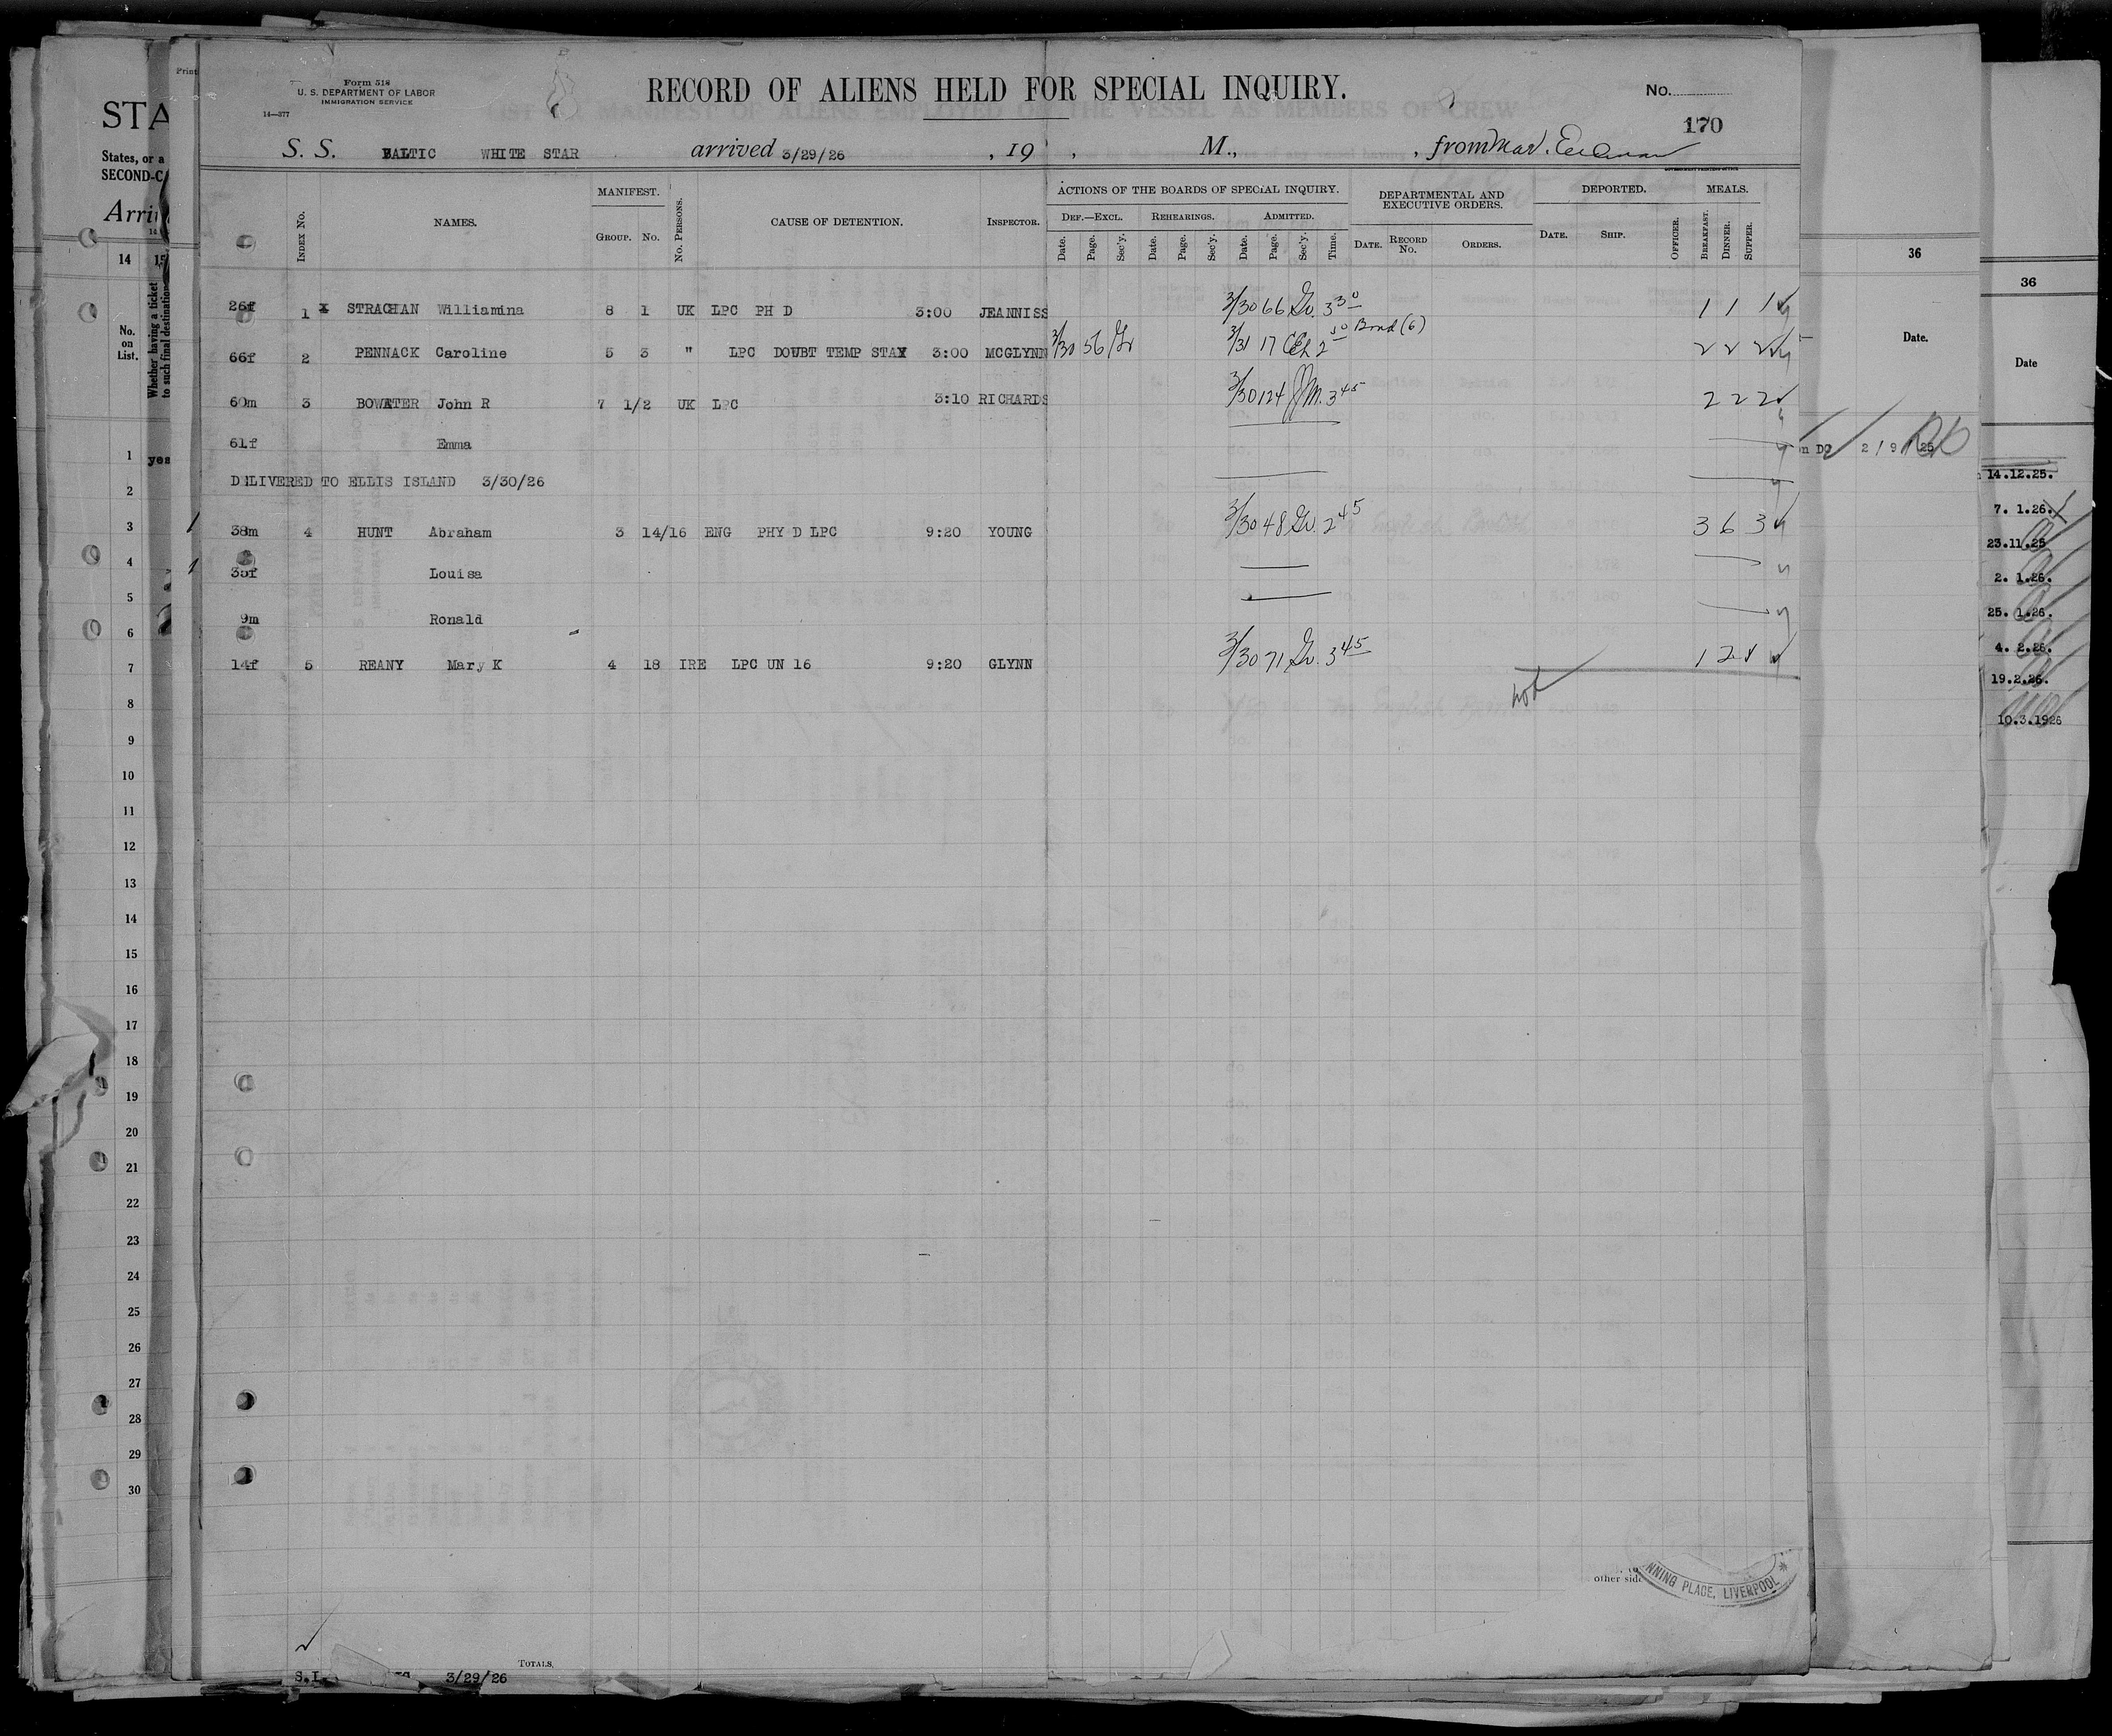 Form 518
U. S. DEPARTMENT OF LABOR
IMMIGRATION SERVICE
14—377
RECORD OF ALIENS HELD FOR SPECIAL INQUIRY.
No.
170
S. S. BALTIC WHITE STAR arrived 3/29/26 , 19 , M., , from
INDEX No. NAMES. MANIFEST. GROUP. No. No. PERSONS. CAUSE OF DETENTION. INSPECTOR. ACTIONS OF THE BOARDS OF SPECIAL INQUIRY. DEPARTMENTAL AND EXECUTIVE ORDERS. DEPORTED. MEALS.
DEF.—EXCL. REHEARINGS. ADMITTED.
Date. Page. Sec'y. Date. Page. Sec'y. Date. Page. Sec'y. Time. DATE. RECORD No. ORDERS. DATE. SHIP. OFFICER. BREAKFAST. DINNER. SUPPER.
26f 1 x STRACHAN Williamina 8 1 UK LPC PH D 3:00 JEANNISS 3/30 66 Gr. 3 30 1 1 1
66f 2 PENNACK Caroline 5 3 " LPC DOUBT TEMP STAY 3:00 MCGLYNN 3/30 56 Gr 3/31 17 2 50 Bond (6) 2 2 2
60m 3 BOWATER John R 7 1/2 UK LPC 3:10 RICHARDS 3/30 124 M. 3 45 2 2 2
61f Emma
DELIVERED TO ELLIS ISLAND 3/30/26
38m 4 HUNT Abraham 3 14/16 ENG PHY D LPC 9:20 YOUNG 3/30 48 Gr. 2 45 3 6 3
35f Louisa
9m Ronald
14f 5 REANY Mary K 4 18 IRE LPC UN 16 9:20 GLYNN 3/30 71 Gr. 3 45 1 2 1
not
other side
NNING PLACE, LIVERPOOL
TOTALS,
S.I. 3/29/26
Print
STA
States, or a
SECOND-CA
Arri
14 15
No. on List.
Whether having a ticket
to such final destination
yes
1
2
3
4
5
6
7
8
9
10
11
12
13
14
15
16
17
18
19
20
21
22
23
24
25
26
27
28
29
30
36
Date.
n DO 2/9/25
36
Date
14.12.25.
7. 1.26.
23.11.25
2. 1.26.
25. 1.26.
4. 2.26.
19.2.26.
10.3.1926